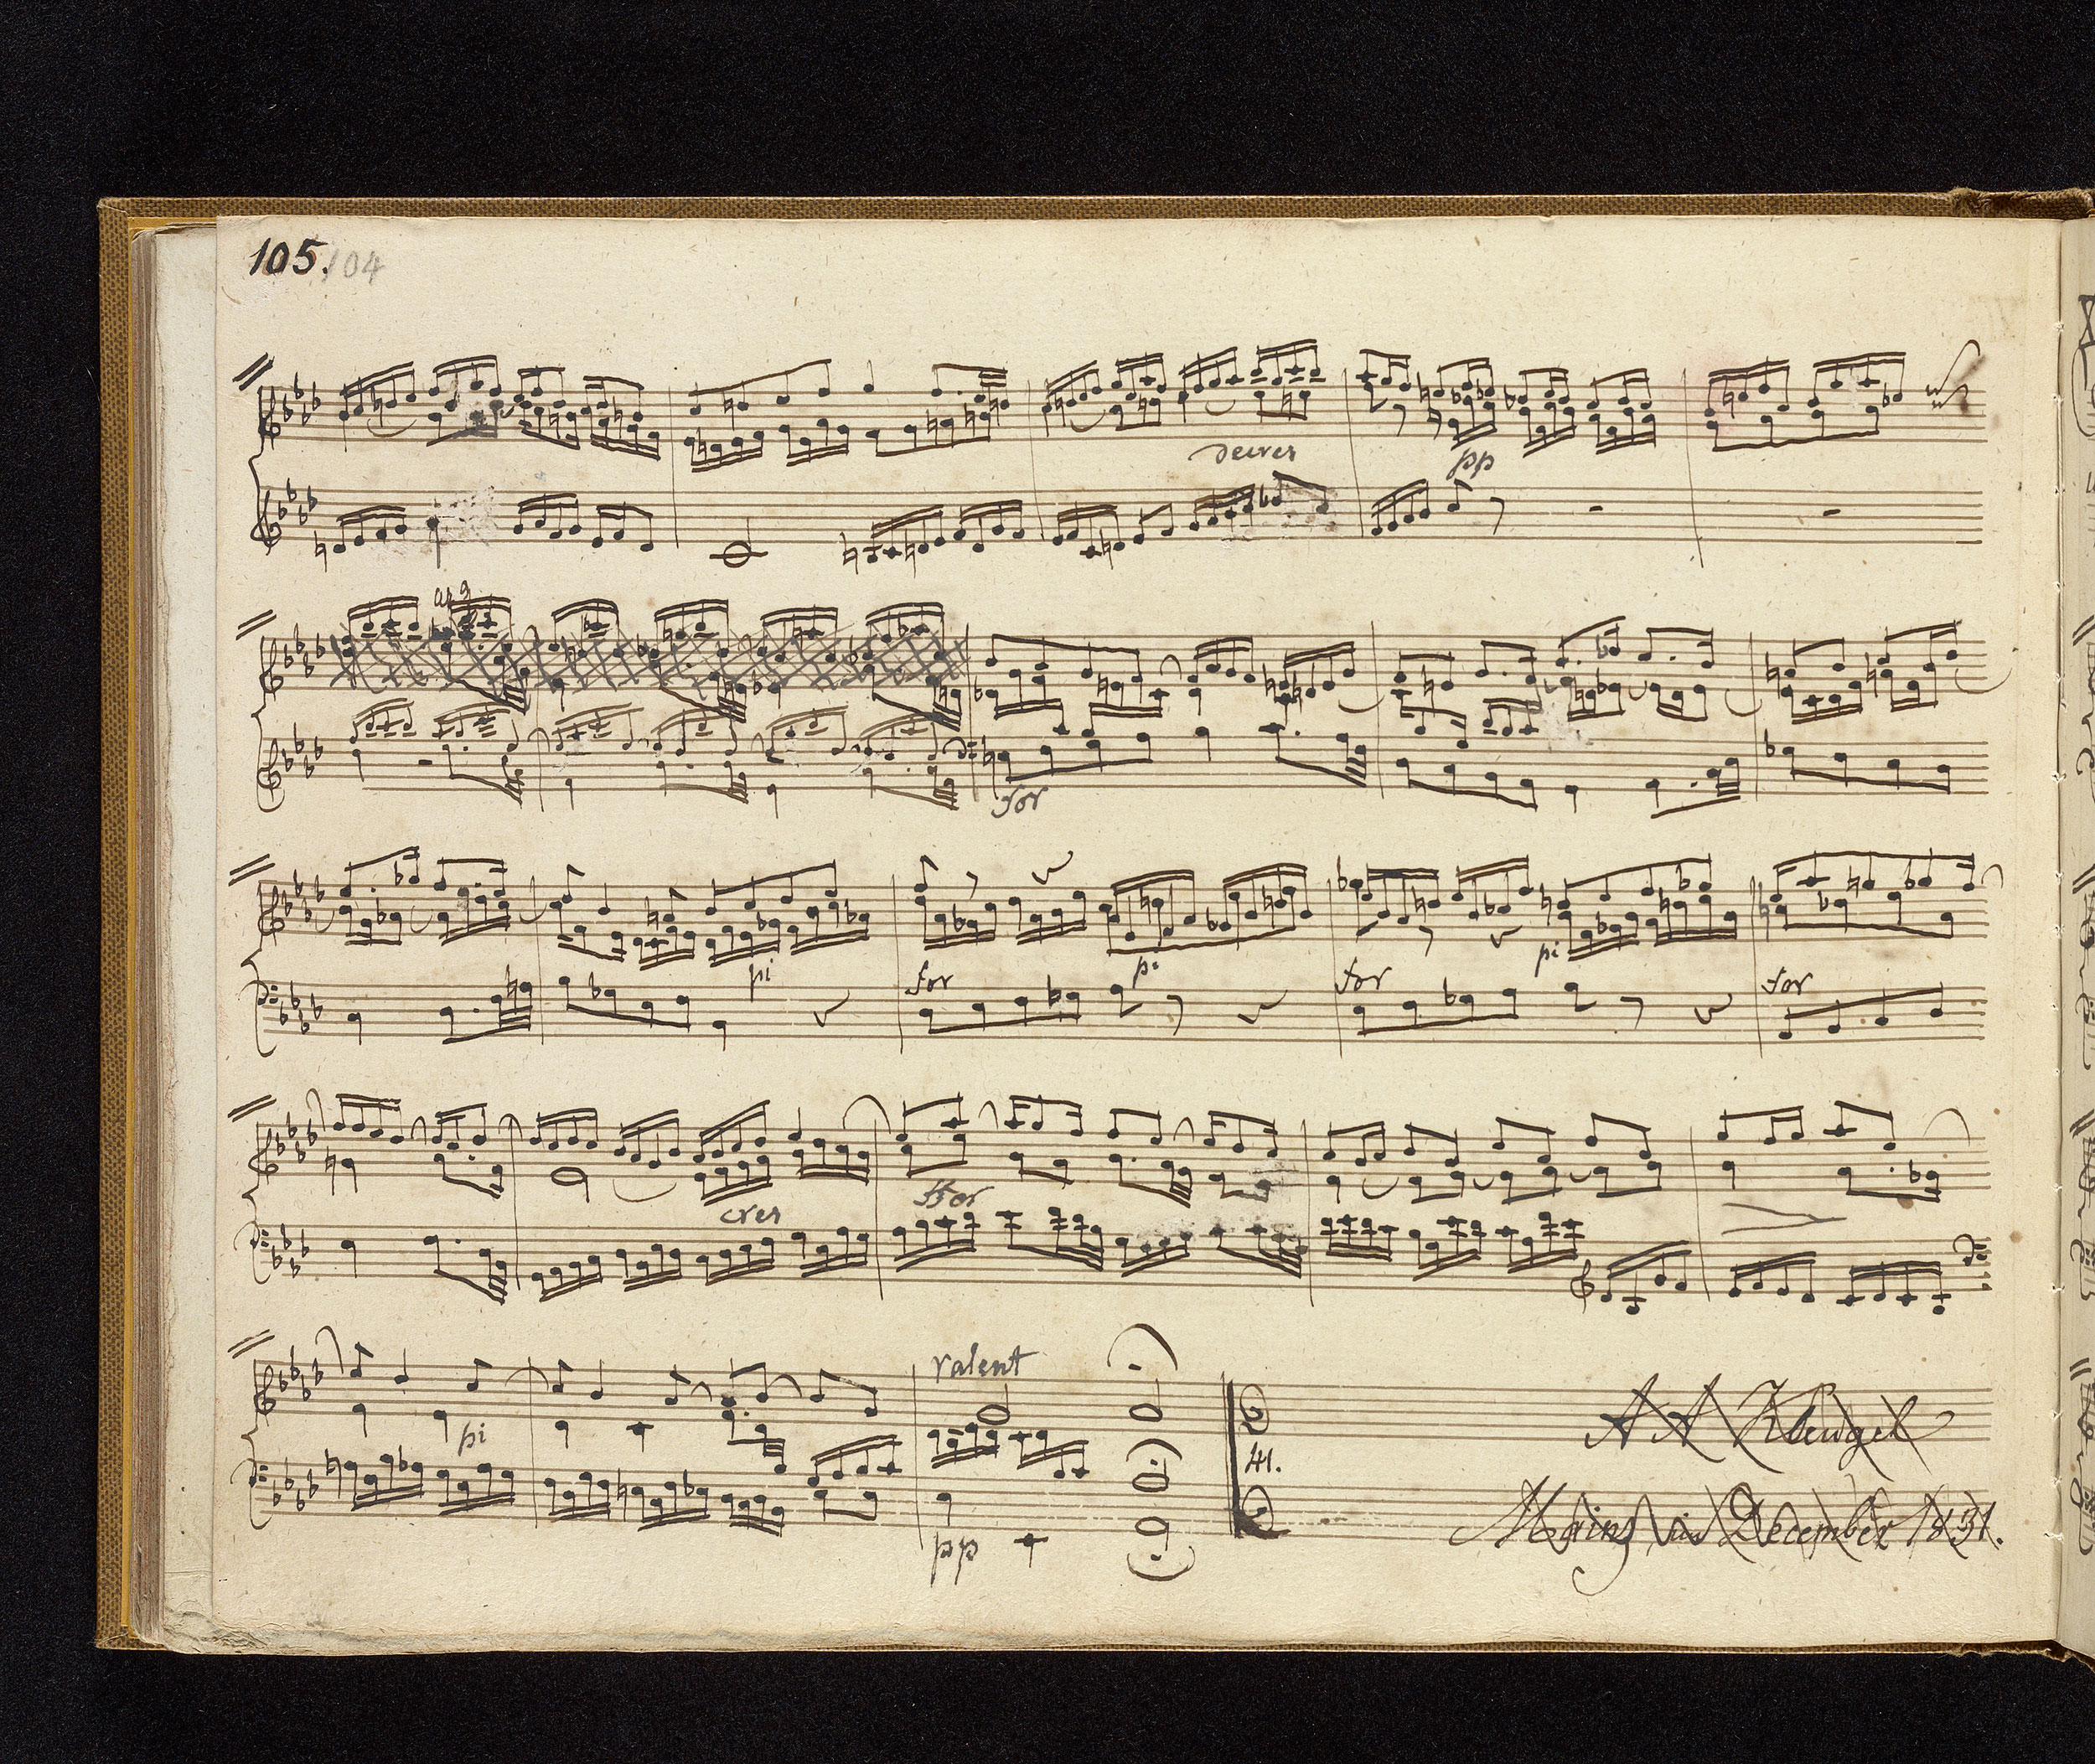 105. 104
decres
pp
for
pi
for
pi
for
pi
for
cres
ffor
ralent
pi
A A Klengel
41.
Mainz in December 1831.
pp